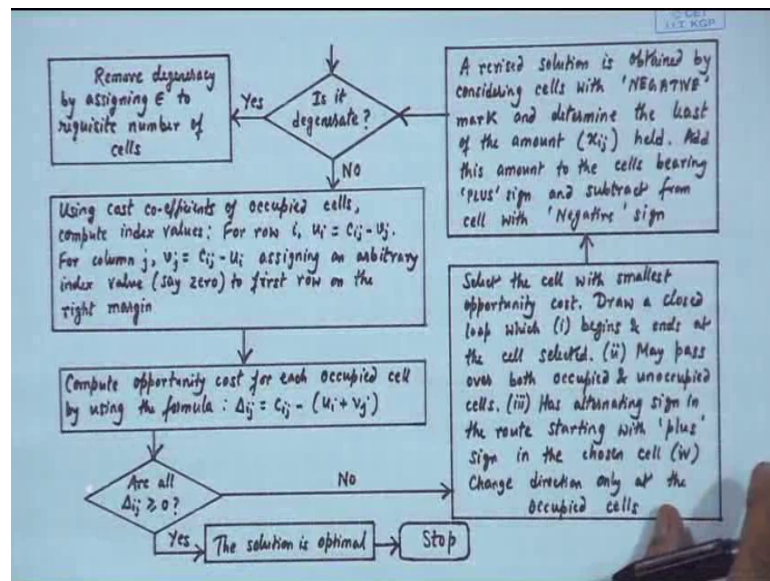 © CET
I.I.T. KGP
Remove degeneracy
by assigning ∈ to
requisite number of
cells
Yes
Is it
degenerate?
A revised solution is obtained by
considering cells with 'NEGATIVE'
mark and determine the least
of the amount (xij) held. Add
this amount to the cells bearing
'PLUS' sign and subtract from
cell with 'Negative' sign
NO
Using cost co-efficients of occupied cells,
compute index values: For row i, ui = cij - vj.
For column j, vj = cij - ui assigning an arbitrary
index value (say zero) to first row on the
right margin
Compute opportunity cost for each occupied cell
by using the formula : Δij = cij - (ui + vj)
Are all
Δij ≥ 0?
No
Yes
The solution is optimal
Stop
Select the cell with smallest
opportunity cost. Draw a closed
loop which (i) begins & ends at
the cell selected. (ii) May pass
over both occupied & unoccupied
cells. (iii) Has alternating sign in
the route starting with 'plus'
sign in the chosen cell (iv)
Change direction only at the
occupied cells